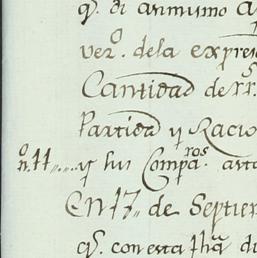 q.^e di asimismo a
ver.^o dela expres
Cantidad de rr.^s
Partida y Racio
n.^o 11 .... y sus Compa.^ros
En 17,, de Septien
q.^e con esta fha di